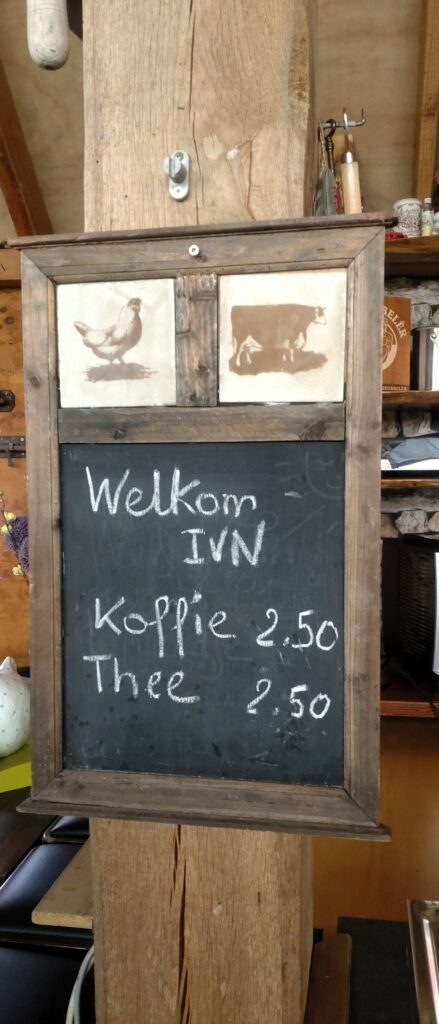 Welkom
IVN
Koffie 2.50
Thee 2.50